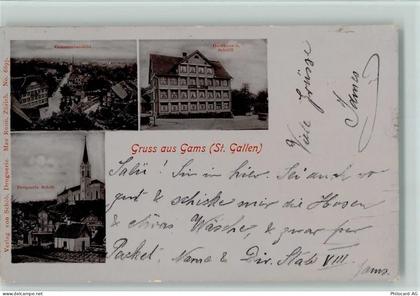 Gesammtansicht
Gasthaus z. Schäfli
Drogerie Schöb
Verlag von Schöb, Droguerie. Max Rom, Zürich. No.
Gruss aus Gams (St. Gallen)
Viele Grüsse
James
Salü! Bin in hier. Sei auch so
gut & schicke mir die Hosen
& etwas Wäsche, & zwar per
Packet. Name & Div. Stab VIII.
Gams.
© Philocard AG